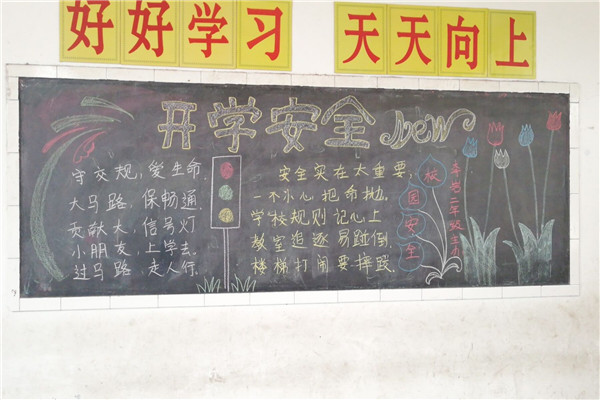 好好学习 天天向上
开学安全 New
守交规,爱生命.
大马路,保畅通.
贡献大,信号灯
小朋友,上学去.
过马路 走人行.
安全实在太重要,
一不小心把命抛.
学校规则记心上
教室追逐易倒.
楼梯打闹要摔跤.
校园安全
二年级